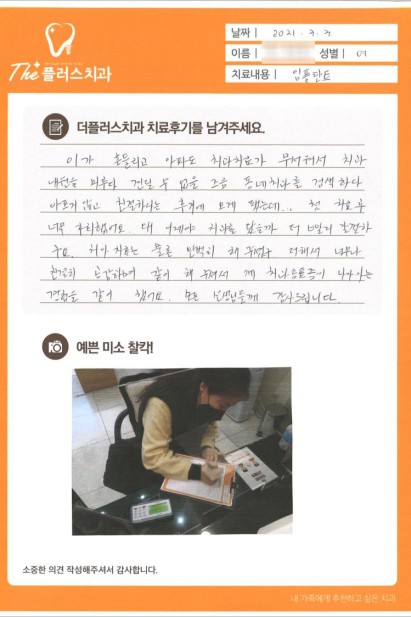 날짜 | 2021. 3. 3
이름 | 성별 | 여
The 플러스치과
치료내용 | 임플란트
더플러스치과 치료후기를 남겨주세요.
이가 흔들리고 아파도 치과치료가 무서워서 치과
내원을 미루다 견딜 수 없을 즈음 동네치과를 검색하다
아프지 않고 친절하다는 후기에 오게 됐는데.., 첫 치료 후
너무 후회했어요. 왜 이제야 치과를 왔을까 더 빨리 올걸하
구요. 치아 치료는 물론 완벽히 해 주셨구 더해서 너무나
친절히 공감하며 같이 해 주셔서 제 치과공포증이 나아지는
경험을 같이 했어요. 모든 선생님들께 감사드립니다.
예쁜 미소 찰칵!
소중한 의견 작성해주셔서 감사합니다.
내 가족에게 추천하고 싶은 치과